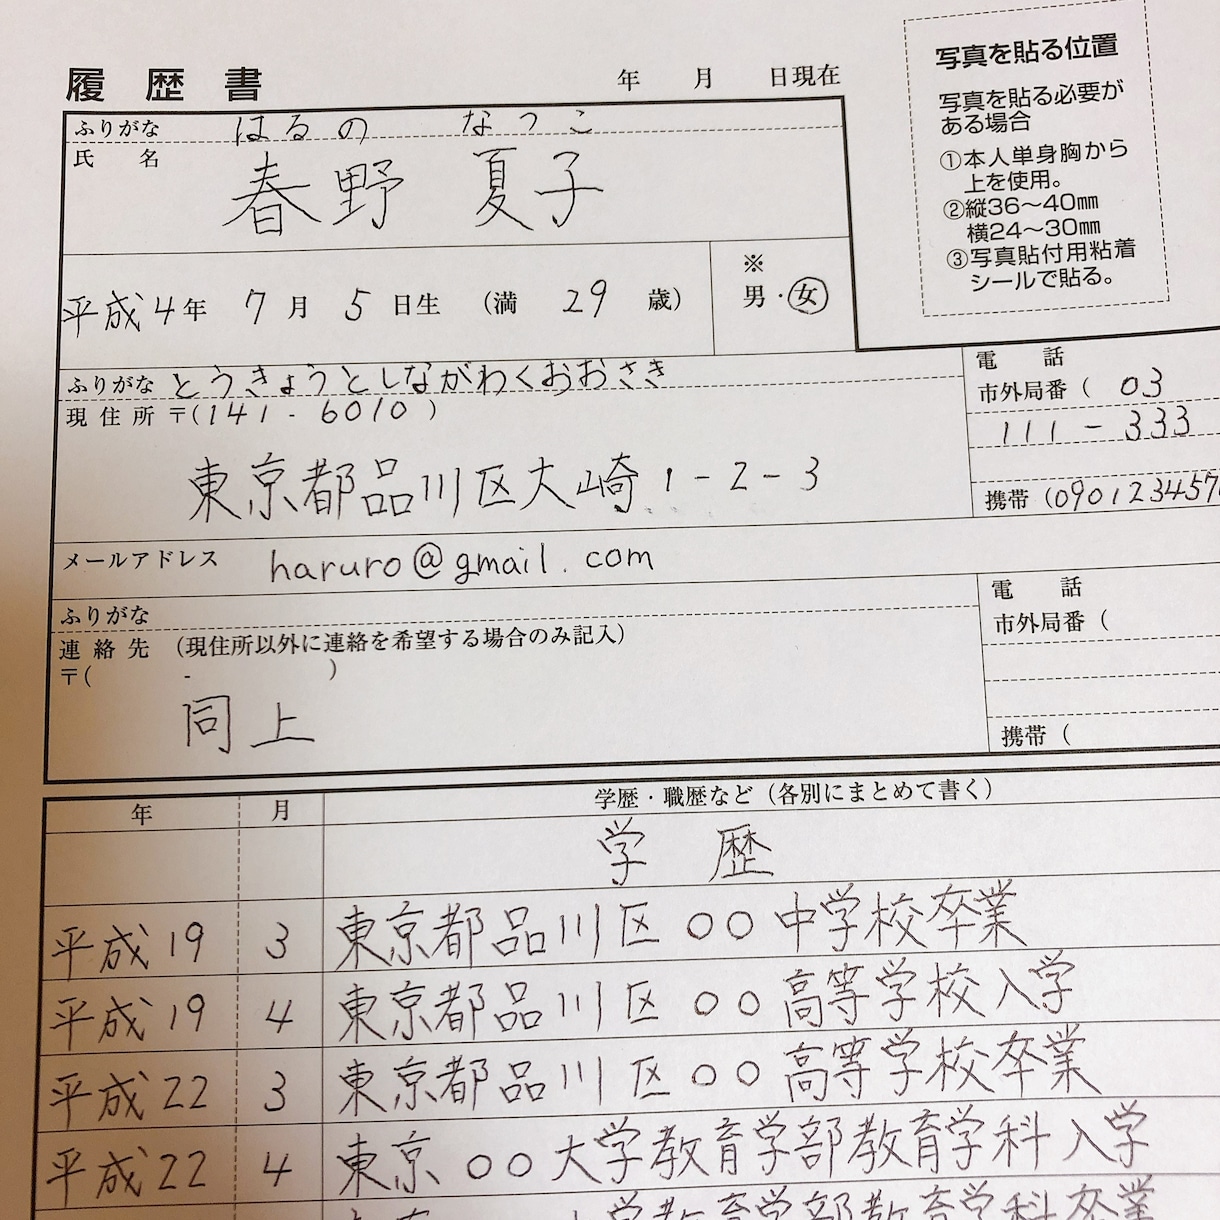 履歴書
年 月 日現在
写真を貼る位置
写真を貼る必要が
ある場合
①本人単身胸から
上を使用。
②縦36～40㎜
横24～30㎜
③写真貼付用粘着
シールで貼る。
ふりがな はるの なつこ
氏 名
春野 夏子
平成4年 7月 5日生 (満 29 歳)
※
男・女
ふりがな とうきょうとしながわくおおさき
現住所 〒(141-6010)
東京都品川区大崎1-2-3
電 話
市外局番( 03
111-333
携帯(090123457
メールアドレス haruro@gmail.com
ふりがな
連絡先 (現住所以外に連絡を希望する場合のみ記入)
〒( - )
同上
電 話
市外局番(
携帯(
年 月 学歴・職歴など(各別にまとめて書く)
学 歴
平成19 3 東京都品川区○○中学校卒業
平成19 4 東京都品川区○○高等学校入学
平成22 3 東京都品川区○○高等学校卒業
平成22 4 東京○○大学教育学部教育学科入学
学教育学部教育学科卒業